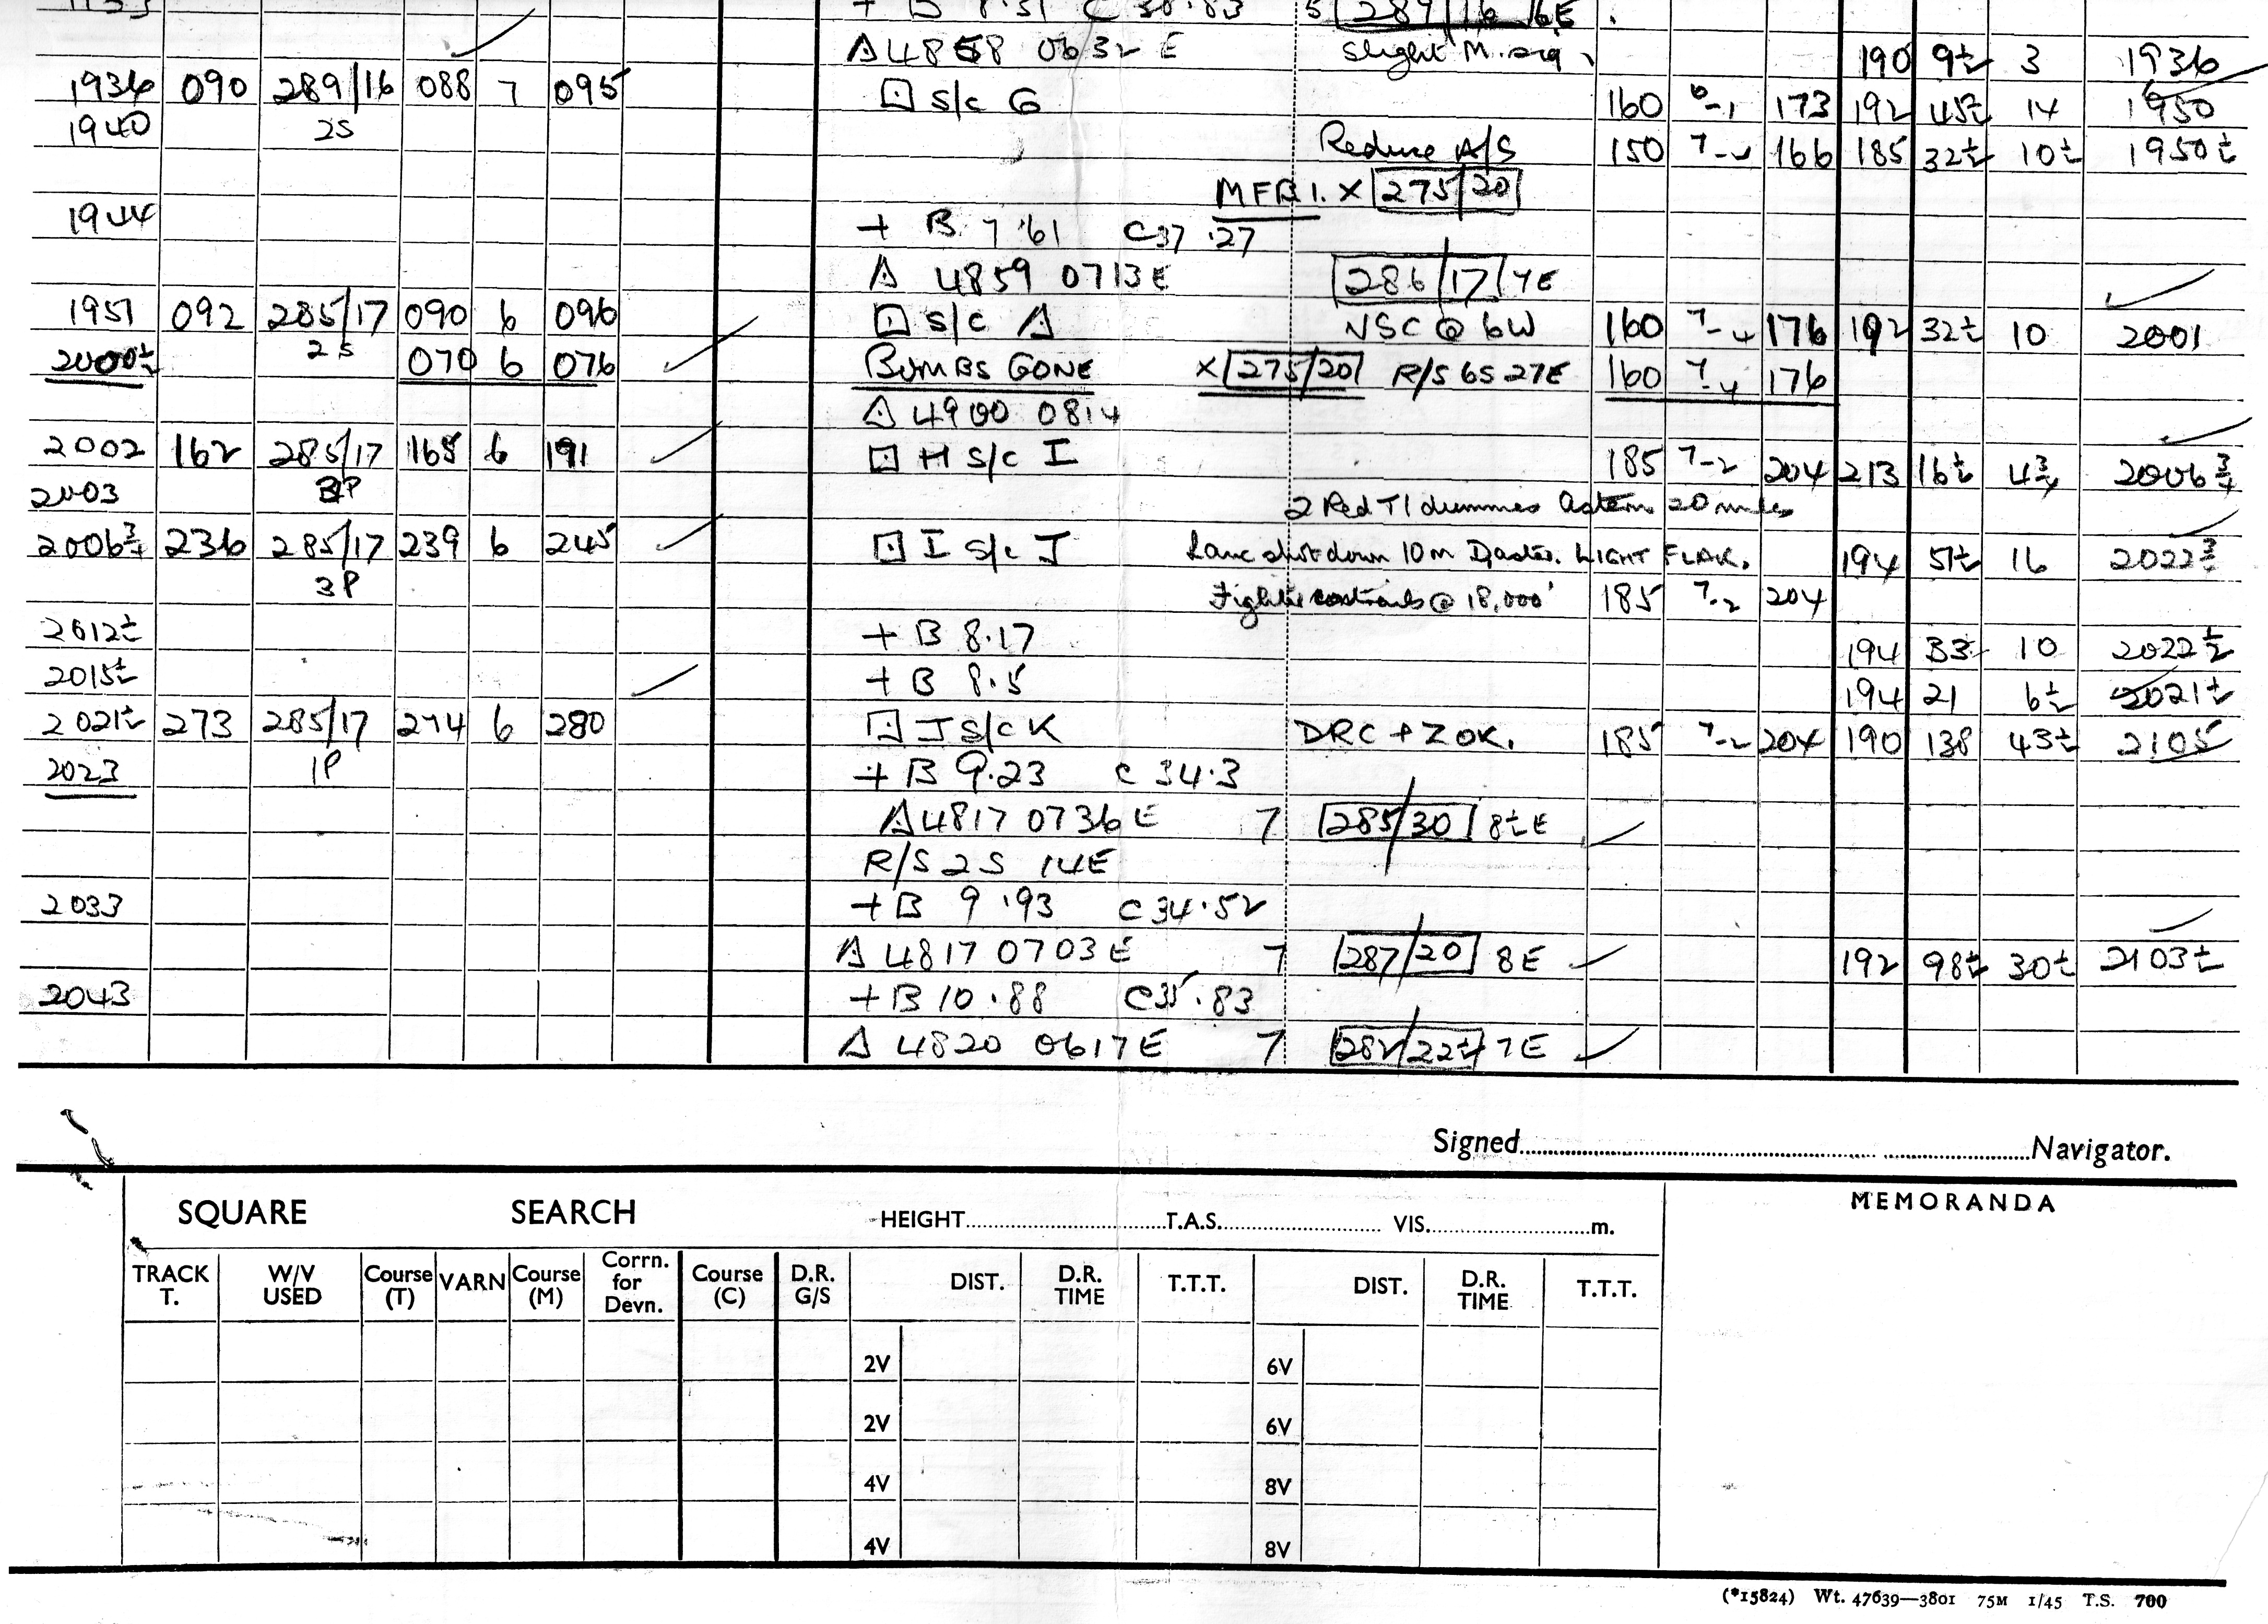 + B 8.51 C 38.83 5 289/16 6E.
Δ 4858 0632 E slight M. sig. 190 9½ 3 1936
1936 090 289/16 088 7 095 ⊡ S/c G 160 6-1 173 192 45½ 14 1950
1940 2S Reduce A/S 150 7-4 166 185 32½ 10½ 1950½
MFB1. X 275/20
1944 + B 7.61 C37.27
Δ 4859 0713E 286/17 7E
1951 092 285/17 090 6 096 ⊡ S/c Δ NSC @ 6W 160 7-4 176 192 32½ 10 2001
2000½ 2S 070 6 076 BOMBS GONE X 275/20 R/S 6S 27E 160 7-4 176
Δ 4900 0814
2002 162 285/17 165 6 191 ⊡ H S/c I 185 7-2 204 213 16½ 4¾ 2006¾
2003 2P 2 Red TI dummies astern 20 miles
2006¾ 236 285/17 239 6 245 ⊡ I S/c J Lanc shot down 10m LIGHT FLAK. 194 51½ 16 2022¾
3P Fighter contrails @ 18,000' 185 7-2 204
2012½ + B 8.17 194 33 10 2022½
2015½ + B 8.5 194 21 6½ 2021½
2021½ 273 285/17 274 6 280 ⊡ J S/c K DRC + Z OK. 185 7-2 204 190 138 43½ 2105
2023 1P + B 9.23 C 34.3
Δ 4817 0736 E 7 285/30 8½E
R/S 2S 14E
2033 + B 9.93 C 34.52
Δ 4817 0703 E 7 287/20 8E 192 98½ 30½ 2103½
2043 + B 10.88 C35.83
Δ 4820 0617E 7 282/22½ 7E
Signed Navigator.
SQUARE SEARCH HEIGHT T.A.S. VIS. m. MEMORANDA
TRACK T. W/V USED Course (T) VARN Course (M) Corrn. for Devn. Course (C) D.R. G/S DIST. D.R. TIME T.T.T. DIST. D.R. TIME T.T.T.
2V 6V
2V 6V
4V 8V
4V 8V
(*15824) Wt. 47639—3801 75M 1/45 T.S. 700